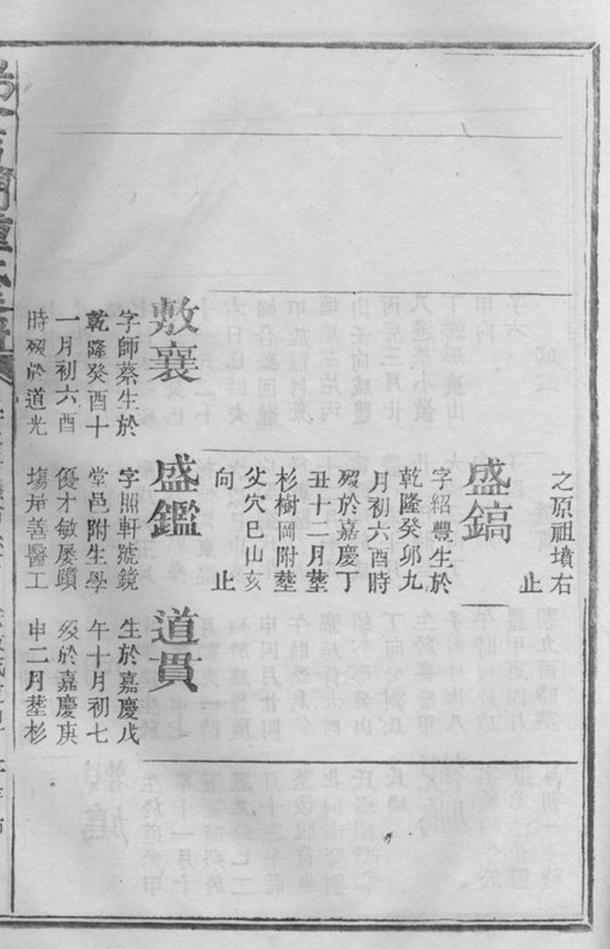 之原祖墳右
止
盛鎬
字紹豐生於
乾隆癸卯九
月初六酉時
歿於嘉慶丁
丑十二月塟
杉樹岡附塟
父穴巳山亥
向　止
敷襄
字師蔡生於
乾隆癸酉十
一月初六酉
時歿於道光
盛鑑
字照軒號鏡
堂邑附生學
優才敏屡躓
塲屋善醫工
道貫
生於嘉慶戊
午十月初七
歿於嘉慶庚
申二月塟杉